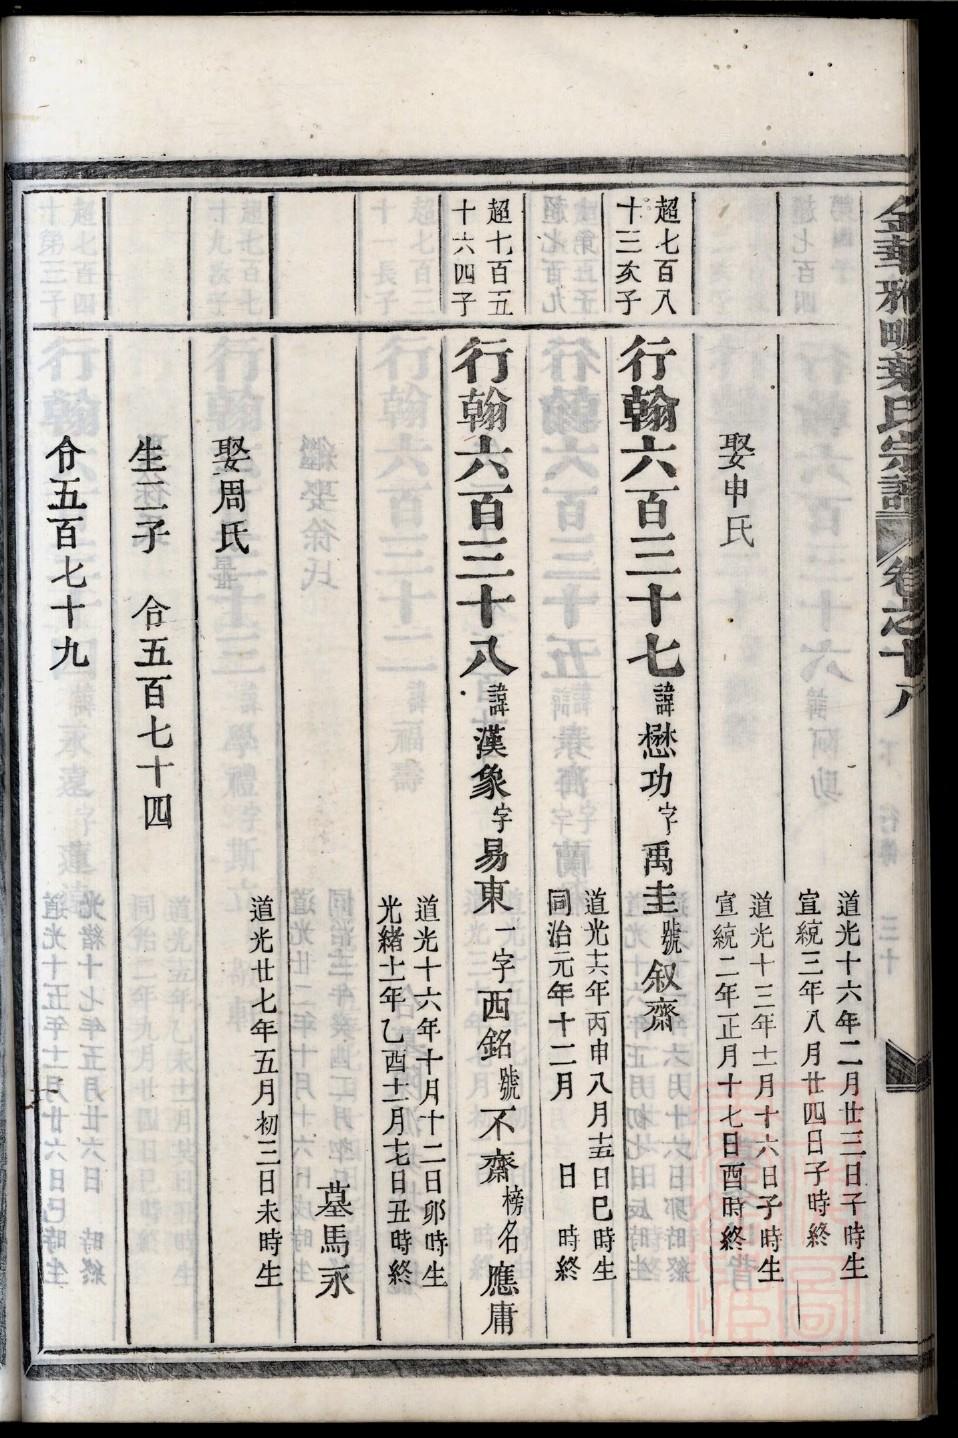 金華雅畈葉氏宗譜 卷之十八 下 行傳 三十
道光十六年二月廿三日子時生
宣統三年八月廿四日子時終
娶申氏
道光十三年十一月十六日子時生
宣統二年正月十七日酉時終
超七百八
十三次子
行翰六百三十七諱懋功字禹圭號叙齋
道光十六年丙申八月十五日巳時生
同治元年十二月 日 時終
超七百五
十六四子
行翰六百三十八諱漢象字易東一字西銘號不齋榜名應庸
道光十六年十月十二日卯時生
光緒十一年乙酉十一月十七日丑時終
墓馬永
娶周氏
道光廿七年五月初三日未時生
生二子 㕣五百七十四
㕣五百七十九